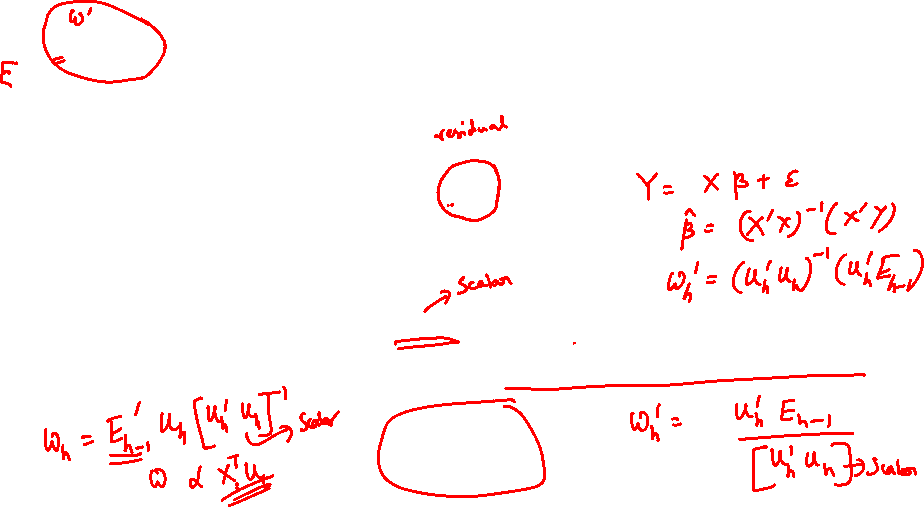 ω'
E
residual
Y = X β + ε
β̂ = (X'X)⁻¹(X'Y)
ω_h' = (u_h' u_h)⁻¹(u_h' E_{h-1})
Scalar
ω_h = E_{h-1}' u_h [u_h' u_h]⁻¹ → Scalar
ω ∝ XᵀU
ω_h' = u_h' E_{h-1} / [u_h' u_h] → Scalar